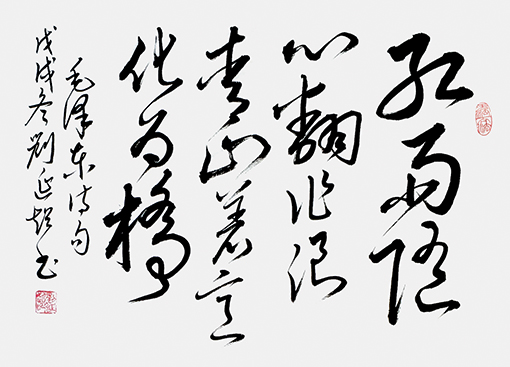 红雨随
心翻作浪
青山着意
化为桥
毛泽东诗句
戊戌冬刘延超书